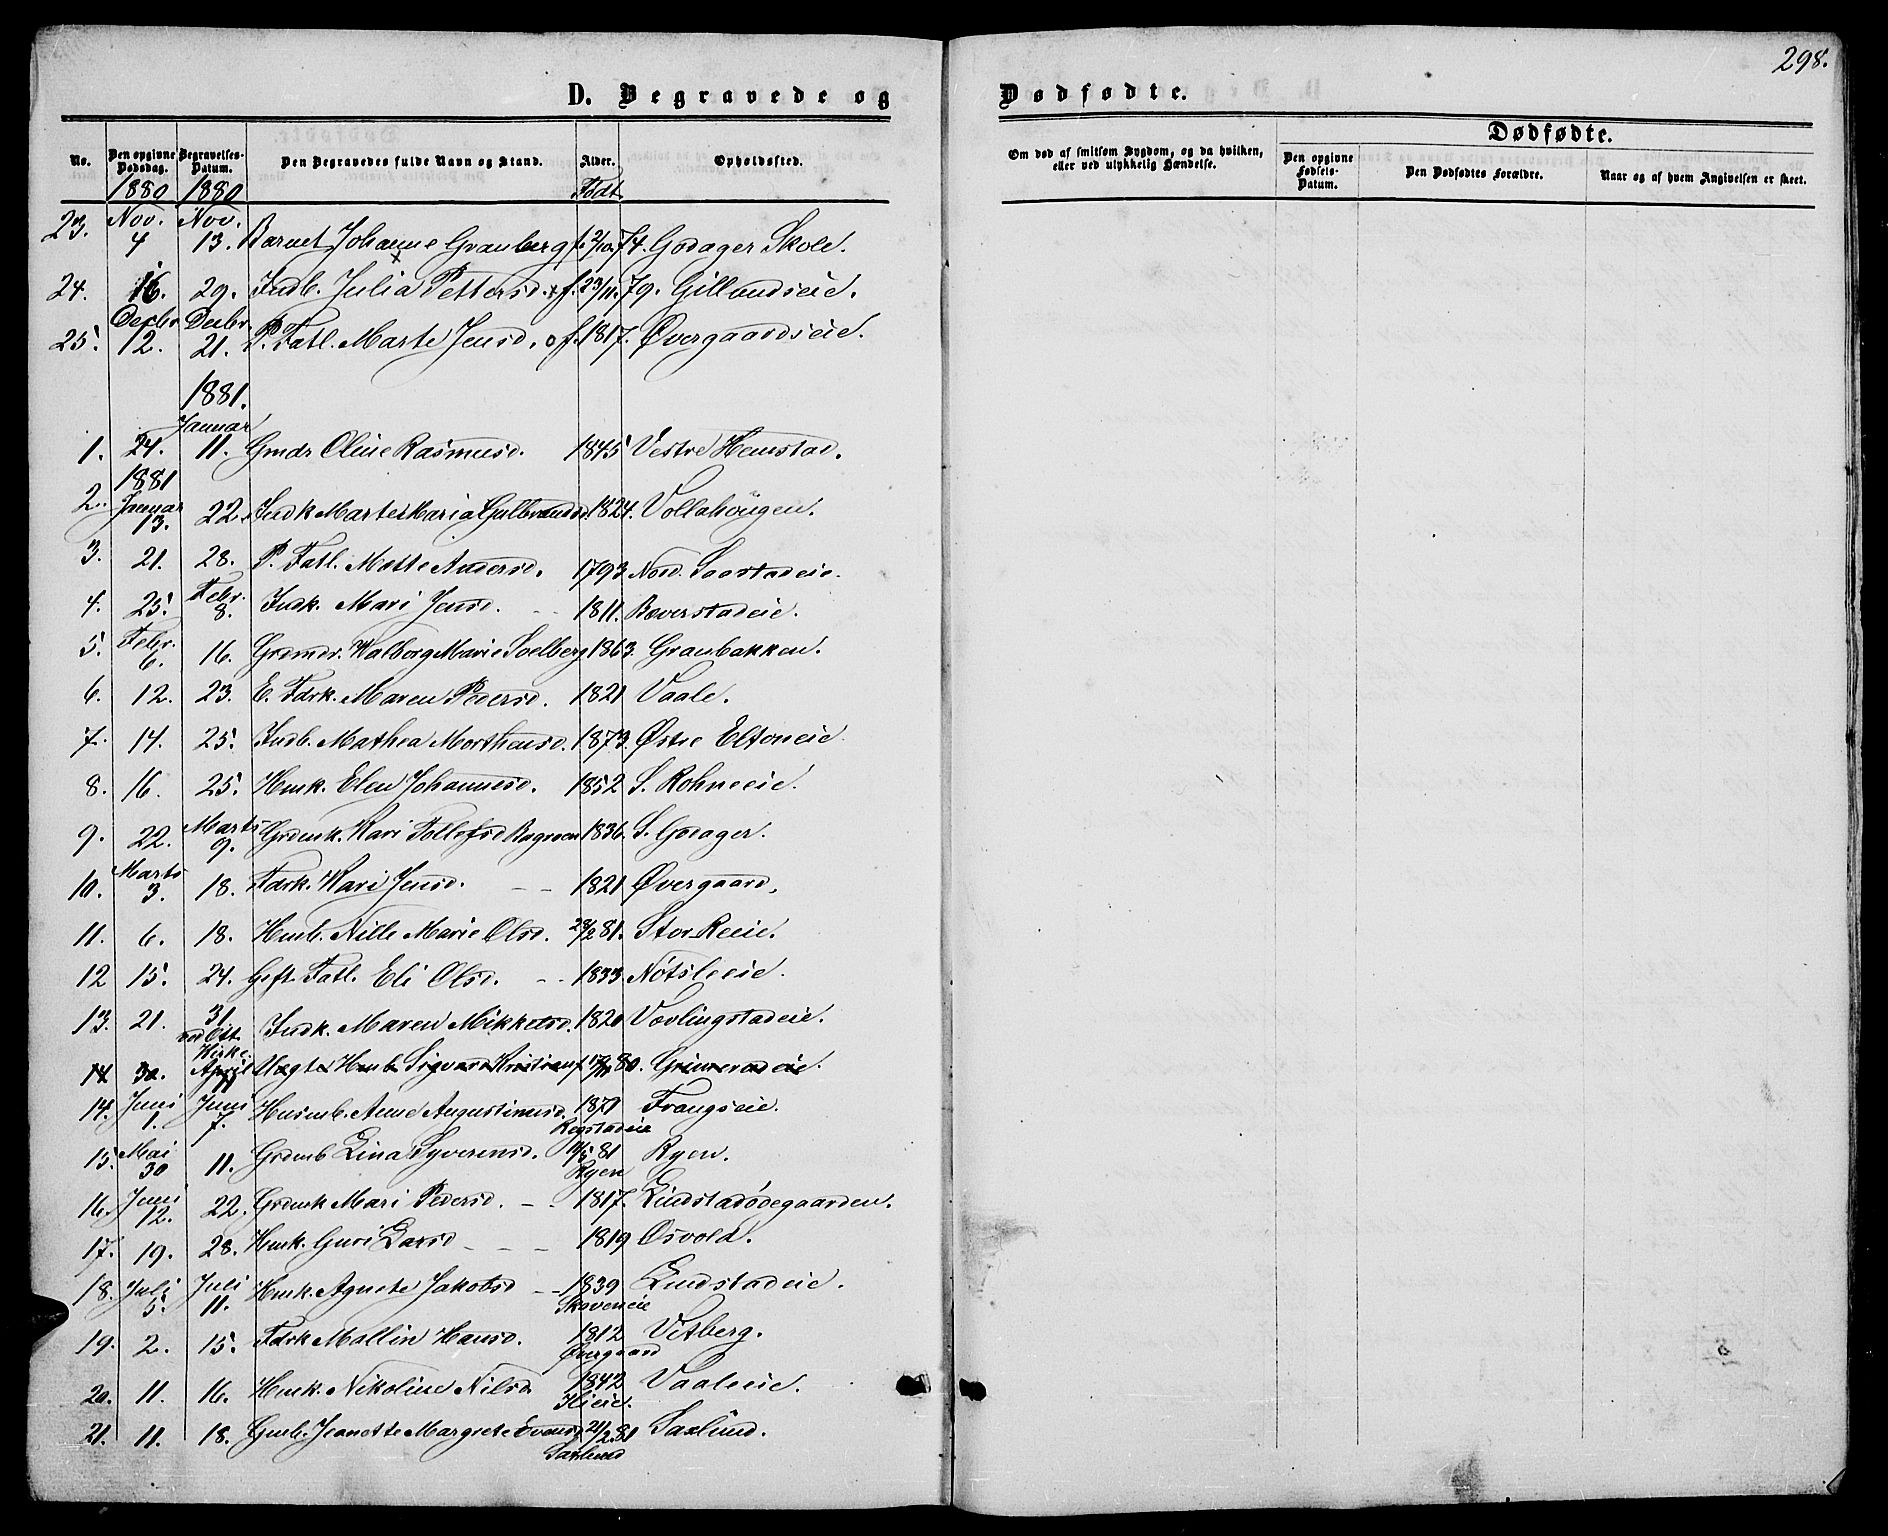 298.
D. Begravede og Dødfødte.
No. Den opgivne Dødsdag. Begravelses-Datum. Den Begravedes fulde Navn og Stand. Alder. Opholdssted.
Om død af smitsom Sygdom, og da hvilken, eller ved ulykkelig Hændelse.
Dødfødte.
Den opgivne Fødsels-Datum. Den Dødfødtes Forældre. Naar og af hvem Angivelsen er skeet.
1880 1880 Født
23. Nov. 4 Nov. 13. Barnet Johanne Granberg f. 2/10.74. Godager Skole.
24. 16. 29. Indb. Julia Pettersd. f. 23/11.79. Gillundseie.
25. Decbr 12. Decbr. 21. P. Fatl. Marte Jensd. f. 1817. Øvergaardseie.
1881.
1. 24. Januar 11. Gmdr Oline Rasmusd. 1845 Vestre Hemstad.
1881
2. Januar 13. 22. Indk Marte Maria Gulbrandsd. 1824. Vollahöugen.
3. 21. 28. P. Fatl. Matte Andersd. 1793 Nord. Saastadeie.
4. 25. Febr. 8. Indk. Mari Jensd. 1811. Bæverstadeie.
5. Febr. 6. 16. Grdmdr. Walborg Marie Solberg 1863. Granbakken.
6. 12. 23. E. Fdrk. Maren Pedersd. 1821. Vaale.
7. 14. 25. Indb. Mathea Morthensd. 1873. Østre Eltoneie.
8. 16. 25. Hmk. Elen Johannesd. 1852 S. Rohneeie.
9. 22. Marts 9. Grdmk. Kari Tollefsd Bagroen 1836. S. Godager.
10. Marts 3. 18. Fdrk. Kari Jensd. 1821 Øvergaard.
11. 6. 18. Hmb. Nille Marie Olsd. 28/2 81. Stor Reeie.
12 15. 24. Gift Fatl. Eli Olsd. 1833. Nötsleeie.
13. 21. 31. Indk. Maren Mikkelsd. 1820 Vævlingstadeie.
ved Ott. Kirke.
14 30. April 11 Uægte Hmb Sigvard Kristians. 17/11 80. Grimeradeie.
14. Juni 1. Juni 7. Husmb. Anne Augustinusd. 1871 Frangseie.
Rogstadeie
15. Mai 30 11. Grdmb Lina Syverensd. 11/5 81 Ryen.
Ryen
16. Juni 12. 22. Grdmk Mari Pedersd. 1817. Lindstadödegaarden.
17. 19. 28. Hmk. Guri Larsd 1819 Osvold.
18. Juli 5. Juli 11. Hmk. Agnete Jakobsd 1839 Lindstadeie.
Skoveneie
19. 2. 15. Fdrk Mallin Hansd. 1812 Vitberg.
Øvergaard
20. 11. 16. Hmk. Nikoline Nilsd 1842 Vaaleeie.
Hieie.
21. 11. 18. Gmb. Jeanette Margrete Evensd 21/2.81 Saxlund.
Saxlund